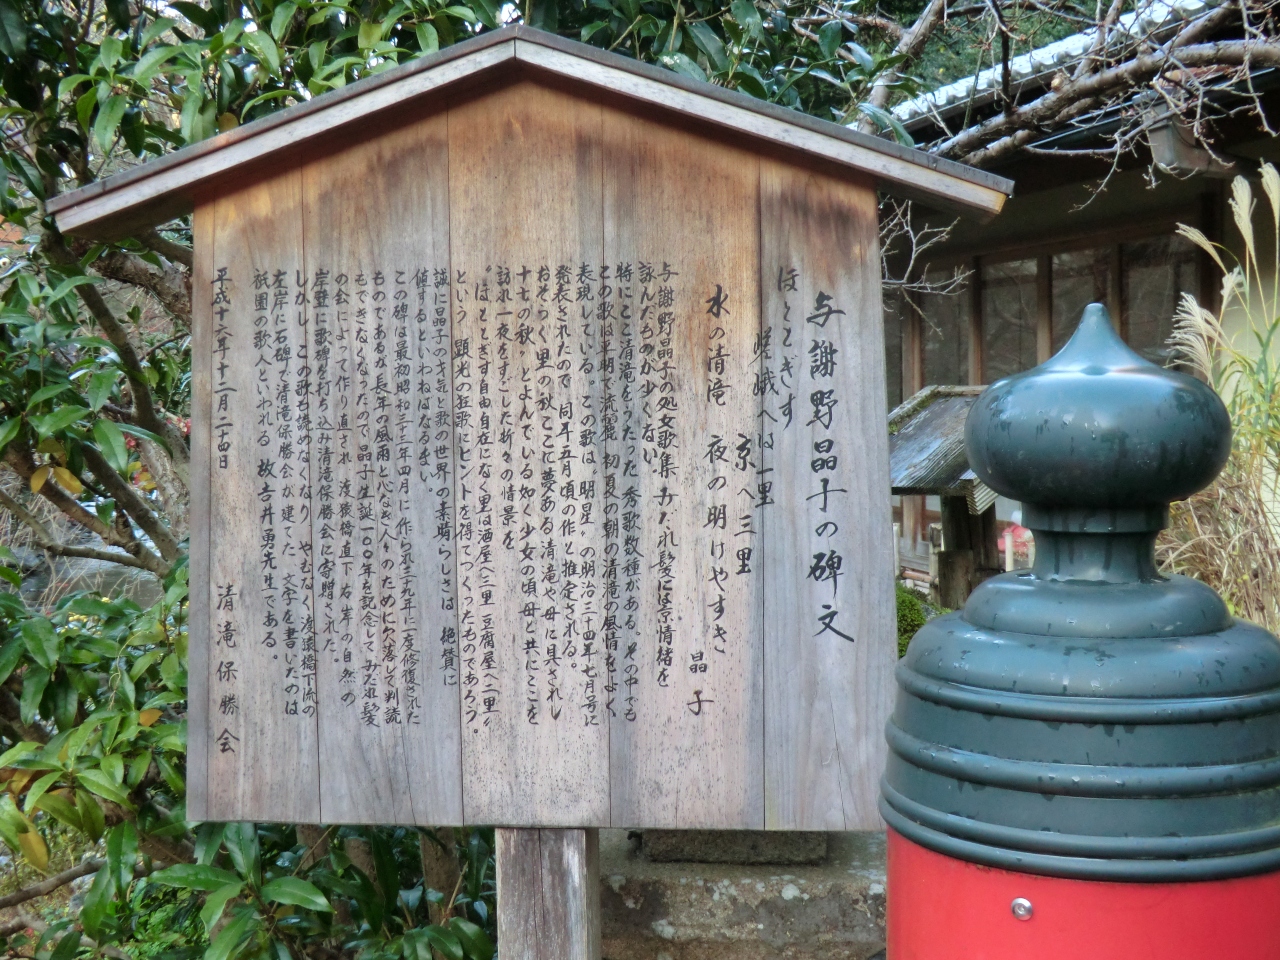 与謝野晶子の碑文
ほととぎす
嵯峨へは一里
京へ三里
水の清滝 夜の明けやすき
晶子
与謝野晶子の処女歌集みだれ髪には京情緒を
詠んだものが少くない。
特にここ清滝をうたった秀歌数種がある。その中でも
この歌は平明で流麗 初夏の朝の清滝の風情をよく
表現している。この歌は〝明星〟の明治三十四年七月号に
発表されたので 同年五月頃の作と推定される。
おそらく里の秋ここに夢ある清滝や母に具されし
十七の秋〟とよんでいる如く少女の頃母と共にここを
訪れ一夜をすごした折々の情景を
〝ほととぎす自由自在になく里は酒屋へ三里 豆腐屋へ二里〟
という 頭光の狂歌にヒントを得てつくったものであろう。
誠に晶子の才気と歌の世界の素晴らしさは 絶賛に
値するといわねばなるまい。
この碑は最初昭和三十三年四月に作られ三十九年に一度修復された
ものであるが長年の風雨と心なき人々のために欠落して判読
もできなくなったので 晶子生誕一〇〇年を記念して みだれ髪
の会によって作り直され 渡猿橋直下 右岸の自然の
岸壁に歌碑を打ち込み清滝保勝会に寄贈された。
しかし、この歌も読めなくなり やむなく渡猿橋下流の
左岸に石碑で清滝保勝会が建てた 文字を書いたのは
祇園の歌人といわれる 故吉井勇先生である。
平成十六年十二月二十四日 清滝保勝会